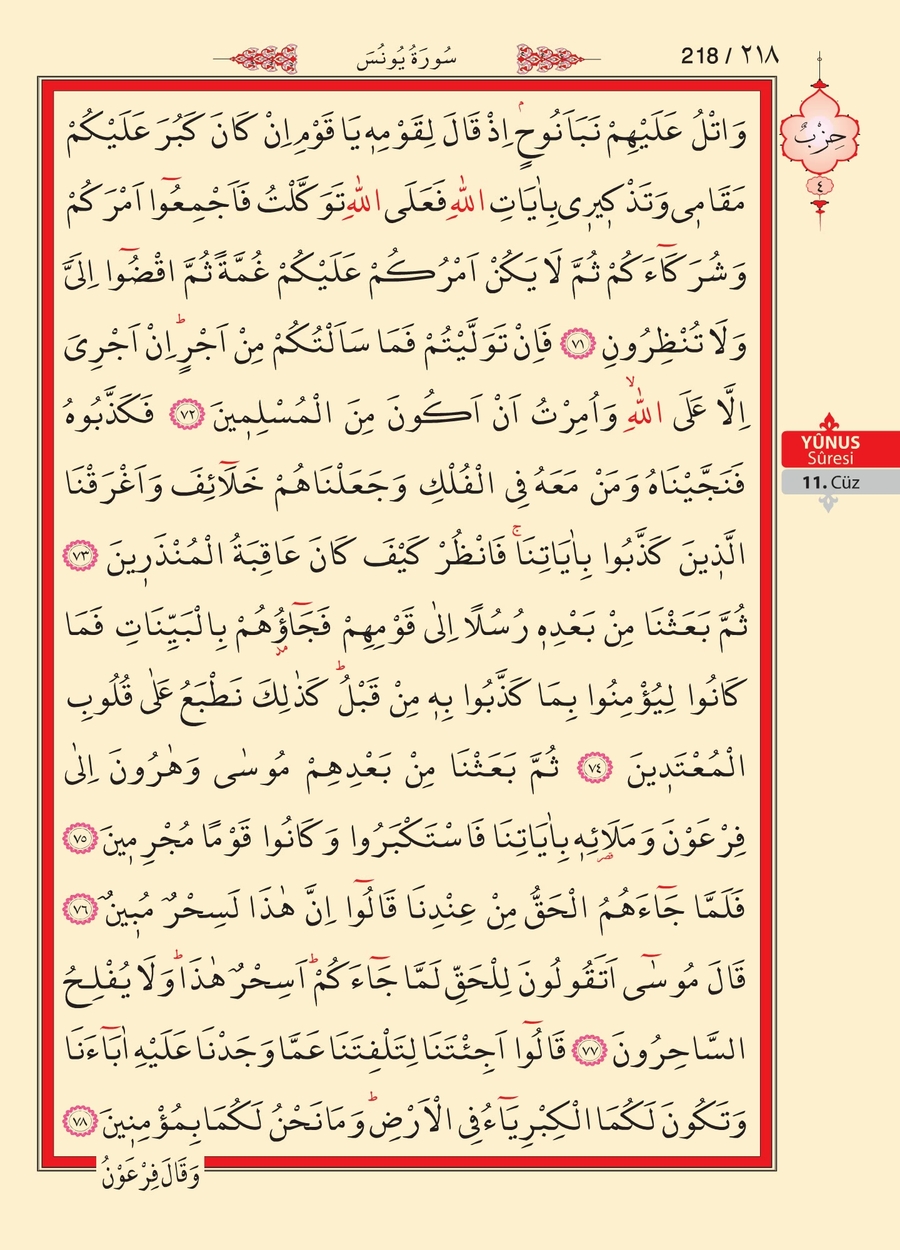 سُورَةُ يُونُسَ
218 / ٢١٨
حِزْبٌ
٤
وَاتْلُ عَلَيْهِمْ نَبَاَ نُوحٍۢ اِذْ قَالَ لِقَوْمِه۪ يَا قَوْمِ اِنْ كَانَ كَبُرَ عَلَيْكُمْ
مَقَام۪ي وَتَذْك۪ير۪ي بِاٰيَاتِ اللّٰهِ فَعَلَى اللّٰهِ تَوَكَّلْتُ فَاَجْمِعُٓوا اَمْرَكُمْ
وَشُرَكَٓاءَكُمْ ثُمَّ لَا يَكُنْ اَمْرُكُمْ عَلَيْكُمْ غُمَّةً ثُمَّ اقْضُٓوا اِلَيَّ
وَلَا تُنْظِرُونِ ﴿٧١﴾ فَاِنْ تَوَلَّيْتُمْ فَمَا سَاَلْتُكُمْ مِنْ اَجْرٍۜ اِنْ اَجْرِيَ
اِلَّا عَلَى اللّٰهِۙ وَاُمِرْتُ اَنْ اَكُونَ مِنَ الْمُسْلِم۪ينَ ﴿٧٢﴾ فَكَذَّبُوهُ
فَنَجَّيْنَاهُ وَمَنْ مَعَهُ فِي الْفُلْكِ وَجَعَلْنَاهُمْ خَلَٓائِفَ وَاَغْرَقْنَا
الَّذ۪ينَ كَذَّبُوا بِاٰيَاتِنَاۚ فَانْظُرْ كَيْفَ كَانَ عَاقِبَةُ الْمُنْذَر۪ينَ ﴿٧٣﴾
ثُمَّ بَعَثْنَا مِنْ بَعْدِه۪ رُسُلًا اِلٰى قَوْمِهِمْ فَجَٓاؤُ۫هُمْ بِالْبَيِّنَاتِ فَمَا
كَانُوا لِيُؤْمِنُوا بِمَا كَذَّبُوا بِه۪ مِنْ قَبْلُۜ كَذٰلِكَ نَطْبَعُ عَلٰى قُلُوبِ
الْمُعْتَد۪ينَ ﴿٧٤﴾ ثُمَّ بَعَثْنَا مِنْ بَعْدِهِمْ مُوسٰى وَهٰرُونَ اِلٰى
فِرْعَوْنَ وَمَلَا۬ئِه۪ بِاٰيَاتِنَا فَاسْتَكْبَرُوا وَكَانُوا قَوْمًا مُجْرِم۪ينَ ﴿٧٥﴾
فَلَمَّا جَٓاءَهُمُ الْحَقُّ مِنْ عِنْدِنَا قَالُٓوا اِنَّ هٰذَا لَسِحْرٌ مُب۪ينٌ ﴿٧٦﴾
قَالَ مُوسٰٓى اَتَقُولُونَ لِلْحَقِّ لَمَّا جَٓاءَكُمْۜ اَسِحْرٌ هٰذَاۜ وَلَا يُفْلِحُ
السَّاحِرُونَ ﴿٧٧﴾ قَالُٓوا اَجِئْتَنَا لِتَلْفِتَنَا عَمَّا وَجَدْنَا عَلَيْهِ اٰبَٓاءَنَا
وَتَكُونَ لَكُمَا الْكِبْرِيَٓاءُ فِي الْاَرْضِۜ وَمَا نَحْنُ لَكُمَا بِمُؤْمِن۪ينَ ﴿٧٨﴾
وَقَالَ فِرْعَوْنُ
YÛNUS
Sûresi
11. Cüz